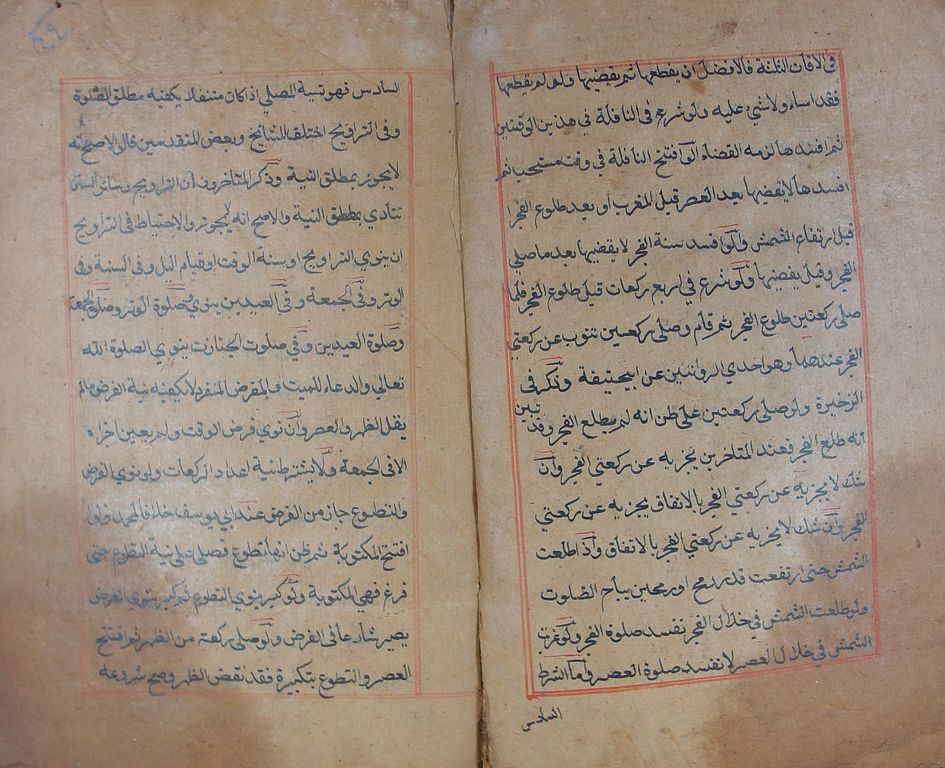 في الاوقات الثلثة فالافضل ان يقطعها ثم يقضيها ولو لم يقطعها
فقد اساء ولا شئ عليه ولو شرع في النافلة في هذين الوقتين
ثم افسدها لزمه القضاء الو افتتح النافلة في وقت مستحب ثم
افسدها لا يقضيها بعد العصر قبل المغرب او بعد طلوع الفجر
قبل ارتفاع الشمس ولو فسد سنة الفجر لا يقضيها بعد ما صلي
الفجر وقيل يقضيها ولو شرع في اربع ركعات قبل طلوع الفجر فلما
صلى ركعتين طلوع الفجر ثم قام وصلى ركعتين تنوب عن ركعتي
الفجر عندهما وهو احدي الروايتين عن ابيحنيفة وذكر في
الذخيرة ولو صلى ركعتين على ظن انه لم يطلع الفجر وقد تبين
انه طلع الفجر فعند المتاخرين يجزيه عن ركعتي الفجر وان
شك لا يجزيه عن ركعتي الفجر بالاتفاق يجزيه عن ركعتي
الفجر وان شك لا يجزيه عن ركعتي الفجر بالاتفاق واذا طلعت
الشمس حتى ارتفعت قدر رمح او رمحين يباح الصلوت
ولو طلعت الشمس في خلال الفجر تفسد صلوة الفجر ولو غربت
الشمس في خلال العصر لا تفسد صلوة العصر واما الشرط
السادس
السادس فهو نية المصلي اذا كان متنفلا يكفيه مطلق الصلوة
وفي التراويح اختلف المشايخ وبعض المتقدمين قالوا الاصح انه
لا يجوز بمطلق النية وذكر المتاخرون ان التراويح وسائر السنن
تتادي بمطلق النية والاصح انه لا يجوز والاحتياط في التراويح
ان ينوي التراويح او سنة الوقت او قيام اليل وفي السنة وفي
الوتر وفي الجمعة وفي العيدين ينوي صلوة الوتر وصلوة الجمعة
وصلوة العيدين وفي صلوت الجنازت ينوي الصلوة الله
تعالى والدعاء للميت والمفرض المنفرد لا يكفيه نية الفرض ما لم
يقل الظهر والعصر وان نوي فرض الوقت ولم يعين اجزاه
الا في الجمعة ولا يشترط نية اعداد الركعات ولو نوي الفرض
والتطوع جاز من الفرض عند ابي يوسف خلافا لمحمد ولو
افتتح المكتوبة ثم ظن انها تطوع فصلى على نية التطوع حتى
فرغ فهي المكتوبة ولو كبر ينوي التطوع ثم كبر ينوي الفرض
يصير شارعا في الفرض ولو صلى ركعة من الظهر ثم افتتح
العصر والتطوع بتكبيرة فقد نقض الظهر وصح شروعه